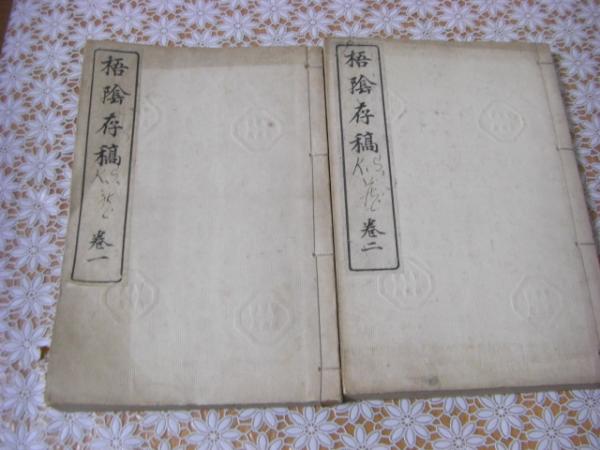 梧陰存稿
卷一
梧陰存稿
卷二